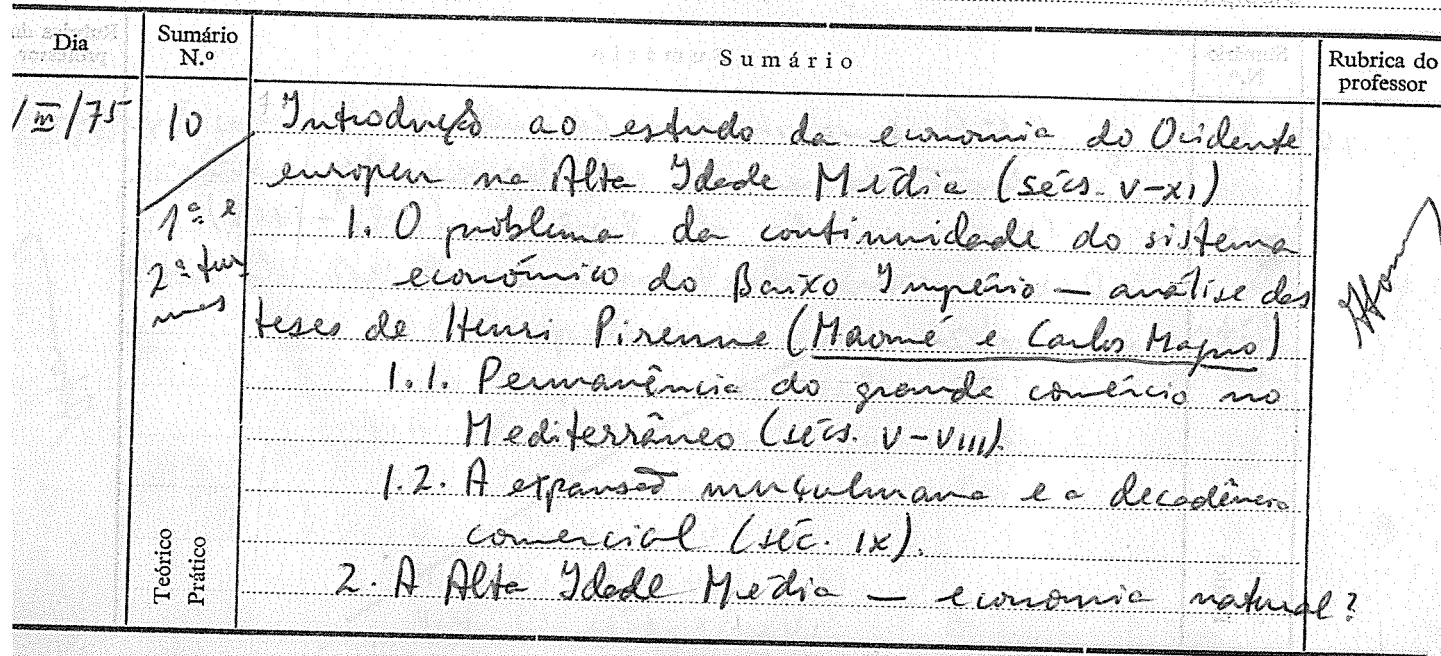 Dia
Sumário N.º
Sumário
Rubrica do professor
/III/75
10
1ª e 2ª turmas
Introdução ao estudo da economia do Ocidente
europeu na Alta Idade Média (sécs. V-XI)
1. O problema da continuidade do sistema
económico do Baixo Império — análise das
teses de Henri Pirenne (Maomé e Carlos Magno)
1.1. Permanência do grande comércio no
Mediterrâneo (sécs. V-VIII).
1.2. A expansão muçulmana e a decadência
comercial (séc. IX).
2. A Alta Idade Média — economia natural?
Teórico
Prático